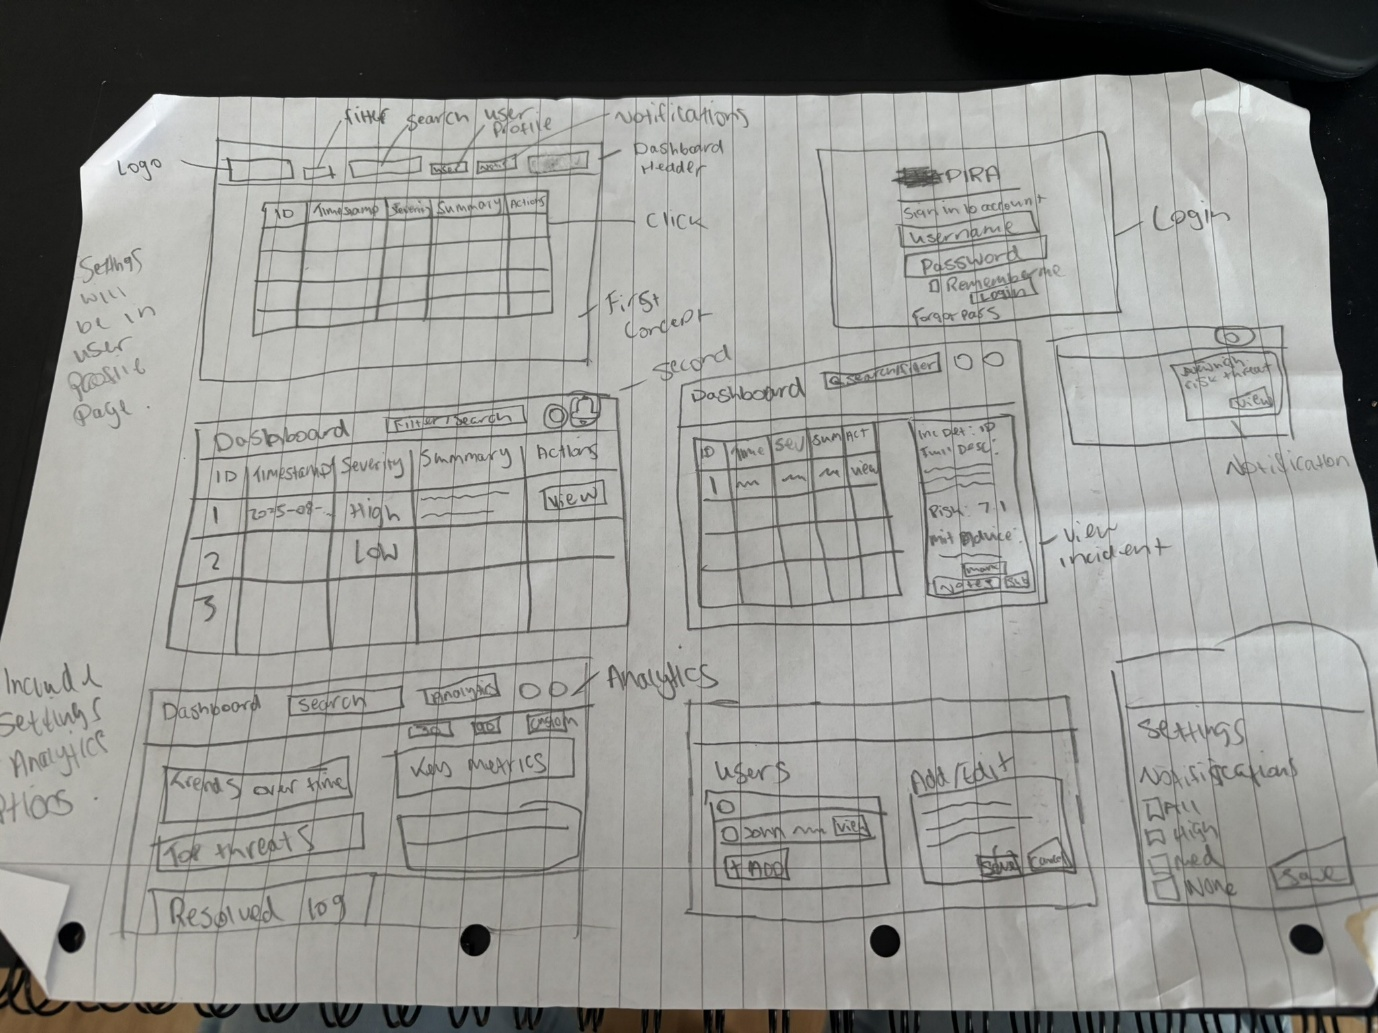 Logo
filter
search
user
profile
Notifications
Dashboard
Header
user
ID Timestamp Severity Summary Actions
Click
First
Concept
Settings
will
be in
user
profile
page.
PIRA
Sign in to account
username
Password
Remember me
Login
Forgot Pass
Login
second
Dashboard
Filter/Search
ID Timestamp Severity Summary Actions
1 2025-08-.. High View
2 Low
3
Dashboard
Search/filter
ID Time Sev Sum Act
1 view
Inc Det: ID
Full Desc:
Risk: 7.1
mit Advice:
mark
Notes
View
incident
risk threat
View
Notification
Include
Settings
Analytics
Dashboard
Search
Analytics
Analytics
custom
Trends over time
Key metrics
Top threats
Resolved log
Users
View
+ Add
Add/Edit
Save
Cancel
Settings
Notifications
All
High
Med
None
Save